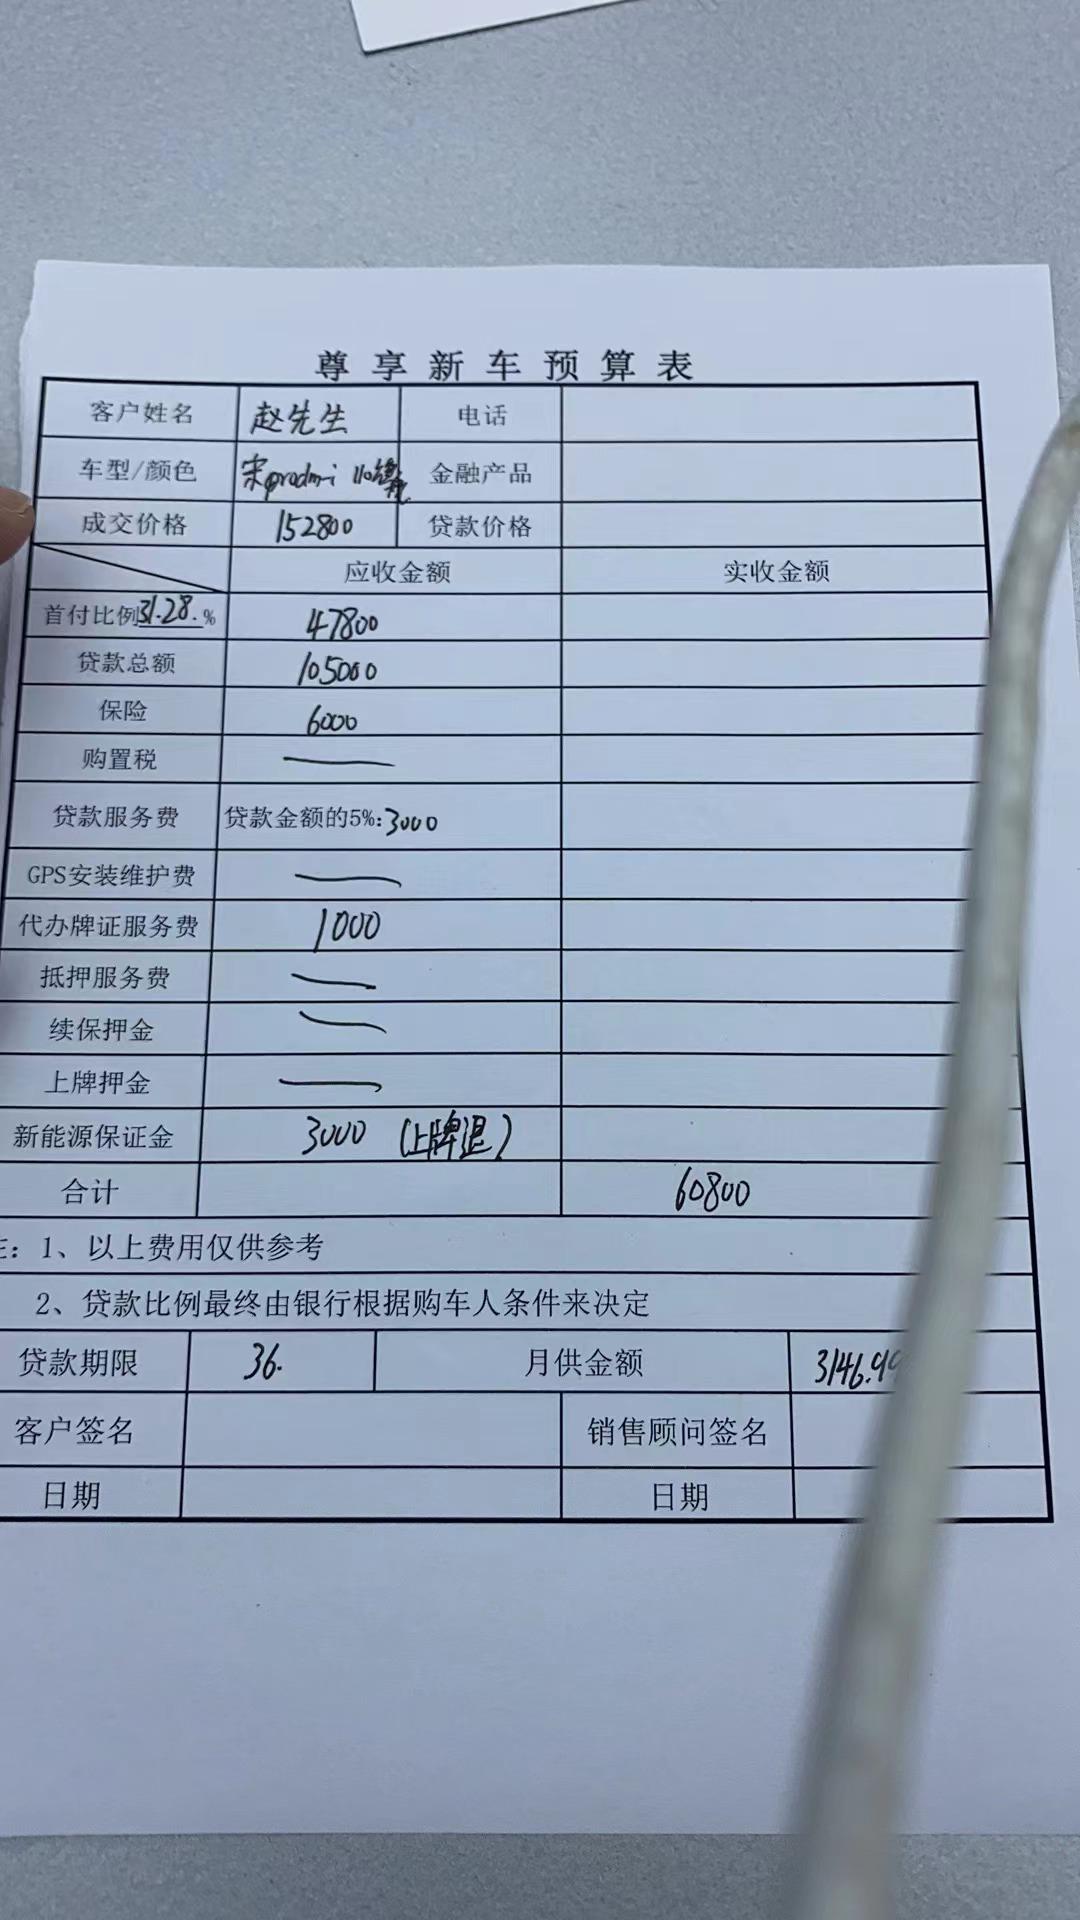 尊享新车预算表
客户姓名 赵先生 电话
车型/颜色 宋prodm-i 110 金融产品
成交价格 152800 贷款价格
应收金额 实收金额
首付比例31.28.% 47800
贷款总额 105000
保险 6000
购置税 —
贷款服务费 贷款金额的5%:3000
GPS安装维护费 —
代办牌证服务费 1000
抵押服务费 —
续保押金 —
上牌押金 —
新能源保证金 3000 (上牌退)
合计 60800
：1、以上费用仅供参考
2、贷款比例最终由银行根据购车人条件来决定
贷款期限 36. 月供金额 3146.99
客户签名 销售顾问签名
日期 日期